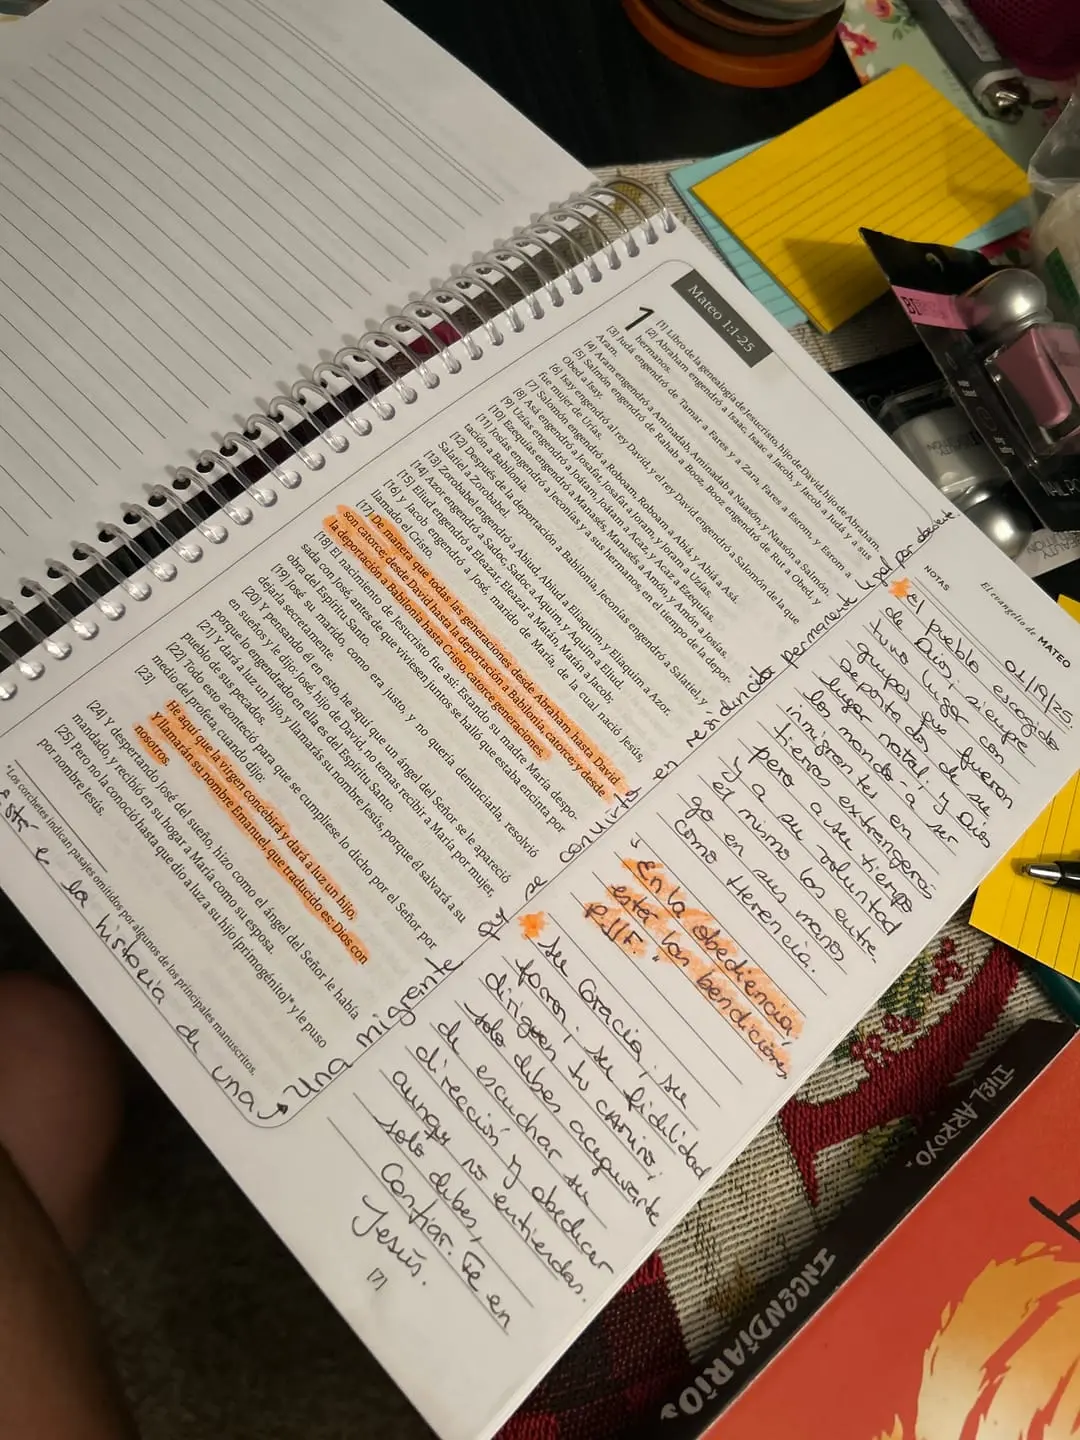 Mateo 1:1-25
1
[1] Libro de la genealogía de Jesucristo, hijo de David, hijo de Abraham.
[2] Abraham engendró a Isaac, Isaac a Jacob, y Jacob a Judá y a sus
hermanos.
[3] Judá engendró de Tamar a Fares y a Zara, Fares a Esrom, y Esrom a
Aram.
[4] Aram engendró a Aminadab, Aminadab a Naasón, y Naasón a Salmón.
[5] Salmón engendró de Rahab a Booz, Booz engendró de Rut a Obed, y
Obed a Isay.
[6] Isay engendró al rey David, y el rey David engendró a Salomón de la que
fue mujer de Urías.
[7] Salomón engendró a Roboam, Roboam a Abiá, y Abiá a Asá.
[8] Asá engendró a Josafat, Josafat a Joram, y Joram a Uzías.
[9] Uzías engendró a Joatam, Joatam a Acaz, y Acaz a Ezequías.
[10] Ezequías engendró a Manasés, Manasés a Amón, y Amón a Josías.
[11] Josías engendró a Jeconías y a sus hermanos, en el tiempo de la depor-
tación a Babilonia.
[12] Después de la deportación a Babilonia, Jeconías engendró a Salatiel, y
Salatiel a Zorobabel.
[13] Zorobabel engendró a Abiud, Abiud a Eliaquim, y Eliaquim a Azor.
[14] Azor engendró a Sadoc, Sadoc a Aquim, y Aquim a Eliud.
[15] Eliud engendró a Eleazar, Eleazar a Matán, Matán a Jacob;
[16] y Jacob engendró a José, marido de María, de la cual nació Jesús,
llamado el Cristo.
[17] De manera que todas las generaciones desde Abraham hasta David
son catorce; desde David hasta la deportación a Babilonia, catorce; y desde
la deportación a Babilonia hasta Cristo, catorce generaciones.
[18] El nacimiento de Jesucristo fue así: Estando su madre María despo-
sada con José, antes de que viviesen juntos se halló que estaba encinta por
obra del Espíritu Santo.
[19] José su marido, como era justo, y no quería denunciarla, resolvió
dejarla secretamente.
[20] Y pensando él en esto, he aquí que un ángel del Señor se le apareció
en sueños y le dijo: José, hijo de David, no temas recibir a María por mujer,
porque lo engendrado en ella es del Espíritu Santo.
[21] Y dará a luz un hijo, y llamarás su nombre Jesús, porque él salvará a su
pueblo de sus pecados.
[22] Todo esto aconteció para que se cumpliese lo dicho por el Señor por
medio del profeta, cuando dijo:
[23]
He aquí que la virgen concebirá y dará a luz un hijo,
Y llamarán su nombre Emanuel, que traducido es: Dios con
nosotros.
[24] Y despertando José del sueño, hizo como el ángel del Señor le había
mandado, y recibió en su hogar a María como su esposa.
[25] Pero no la conoció hasta que dio a luz a su hijo [primogénito]* y le puso
por nombre Jesús.
*Los corchetes indican pasajes omitidos por algunos de los principales manuscritos.
Está es la historia de una →
Una migrante qy se convirtió en residente permanente legal por
El evangelio de MATEO
NOTAS
01/19/25.
El pueblo escogido
de Dios; siempre
tuvo lugar con
grupos que fueron
deportados de su
lugar natal; y Dios
los mandó a ser
inmigrantes en
tierras extrangeras
pero a su tiempo
y a su voluntad
el mismo los entre
go en sus manos
como Herencia.
"En la obediencia,
están las bendiciones
P.JJF."
Su Gracia, su
favor, su fidelidad
dirigen tu camino;
solo debes asegurarte
de escuchar su
dirección y obedecer
aunqy no entiendas.
solo debes,
Confiar. Fe en
Jesús.
[7]
ITIEL ARROYO
INCENDIARIOS
NAIL PO